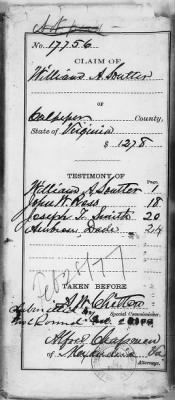 No. 17756
CLAIM OF
William A. Soutter
OF
Culpeper County,
State of Virginia
$ 1278
TESTIMONY OF
Page
William A. Soutter 1
John W. Ross 18
Joseph T. Smith 20
Ambrose Dade 24
Feb 28/77
TAKEN BEFORE
Special Commissioner.
Submitted by
Alfred Chapman
of Alexandria Va
Attorneys.